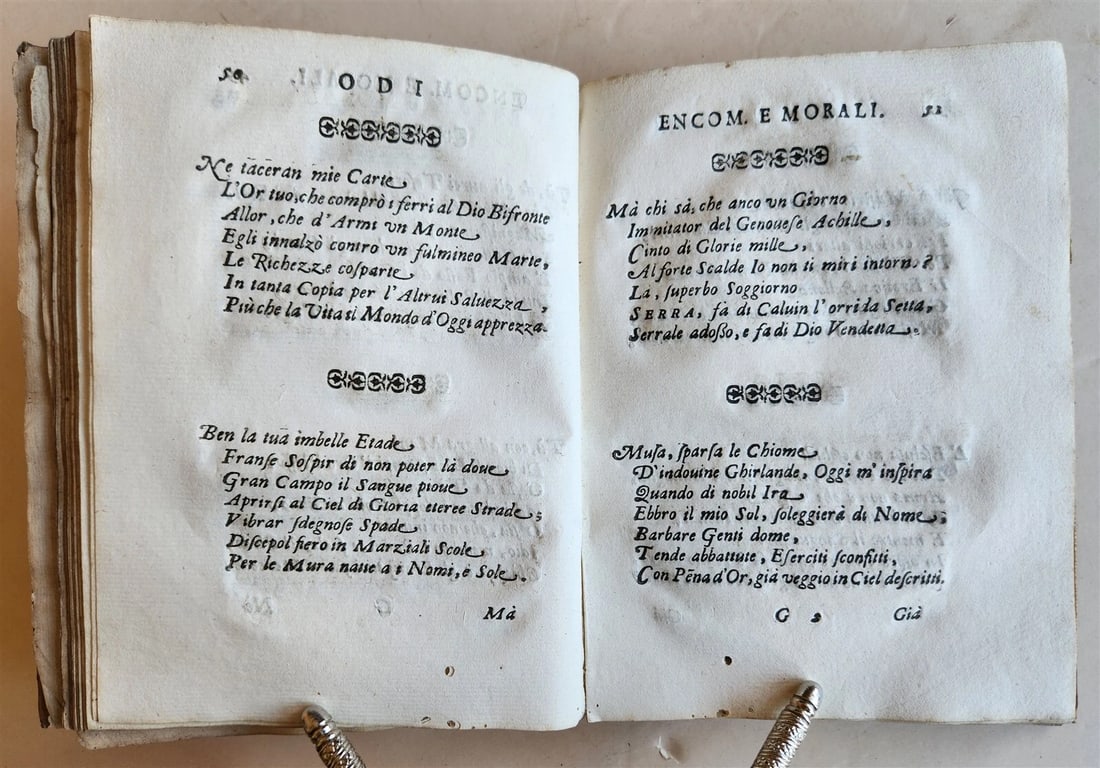 50 ODI
Ne taceran mie Carte
L'Or tuo, che comprò i ferri al Dio Bifronte
Allor, che d'Armi vn Monte
Egli innalzò contro vn fulmineo Marte,
Le Richezze coſparte
In tanta Copia per l'Altrui Saluezza,
Più che la Vita il Mondo d'Oggi apprezza.
Ben la tua imbelle Etade
Franſe Soſpir di non poter là doue
Gran Campo il Sangue pioue
Aprirſi al Ciel di Gloria eteree Strade;
Vibrar ſdegnoſe Spade
Diſcepol fiero in Marziali Scole
Per le Mura natte a i Nomi, e Sole.
Mà
ENCOM. E MORALI. 51
Mà chi sà, che anco vn Giorno
Immitator del Genoueſe Achille,
Cinto di Glorie mille,
Al forte Scalde Io non ti miri intorno?
Là, ſuperbo Soggiorno
SERRA, fà di Caluin l'orrida Setta,
Serrale adoſſo, e fa di Dio Vendetta.
Muſa, ſparſa le Chiome
D'indouine Ghirlande, Oggi m'inſpira
Quando di nobil Ira
Ebbro il mio Sol, ſoleggierà di Nome;
Barbare Genti dome,
Tende abbattute, Eſerciti ſconfitti,
Con Pēna d'Or, già veggio in Ciel deſcritti.
G 2 Già